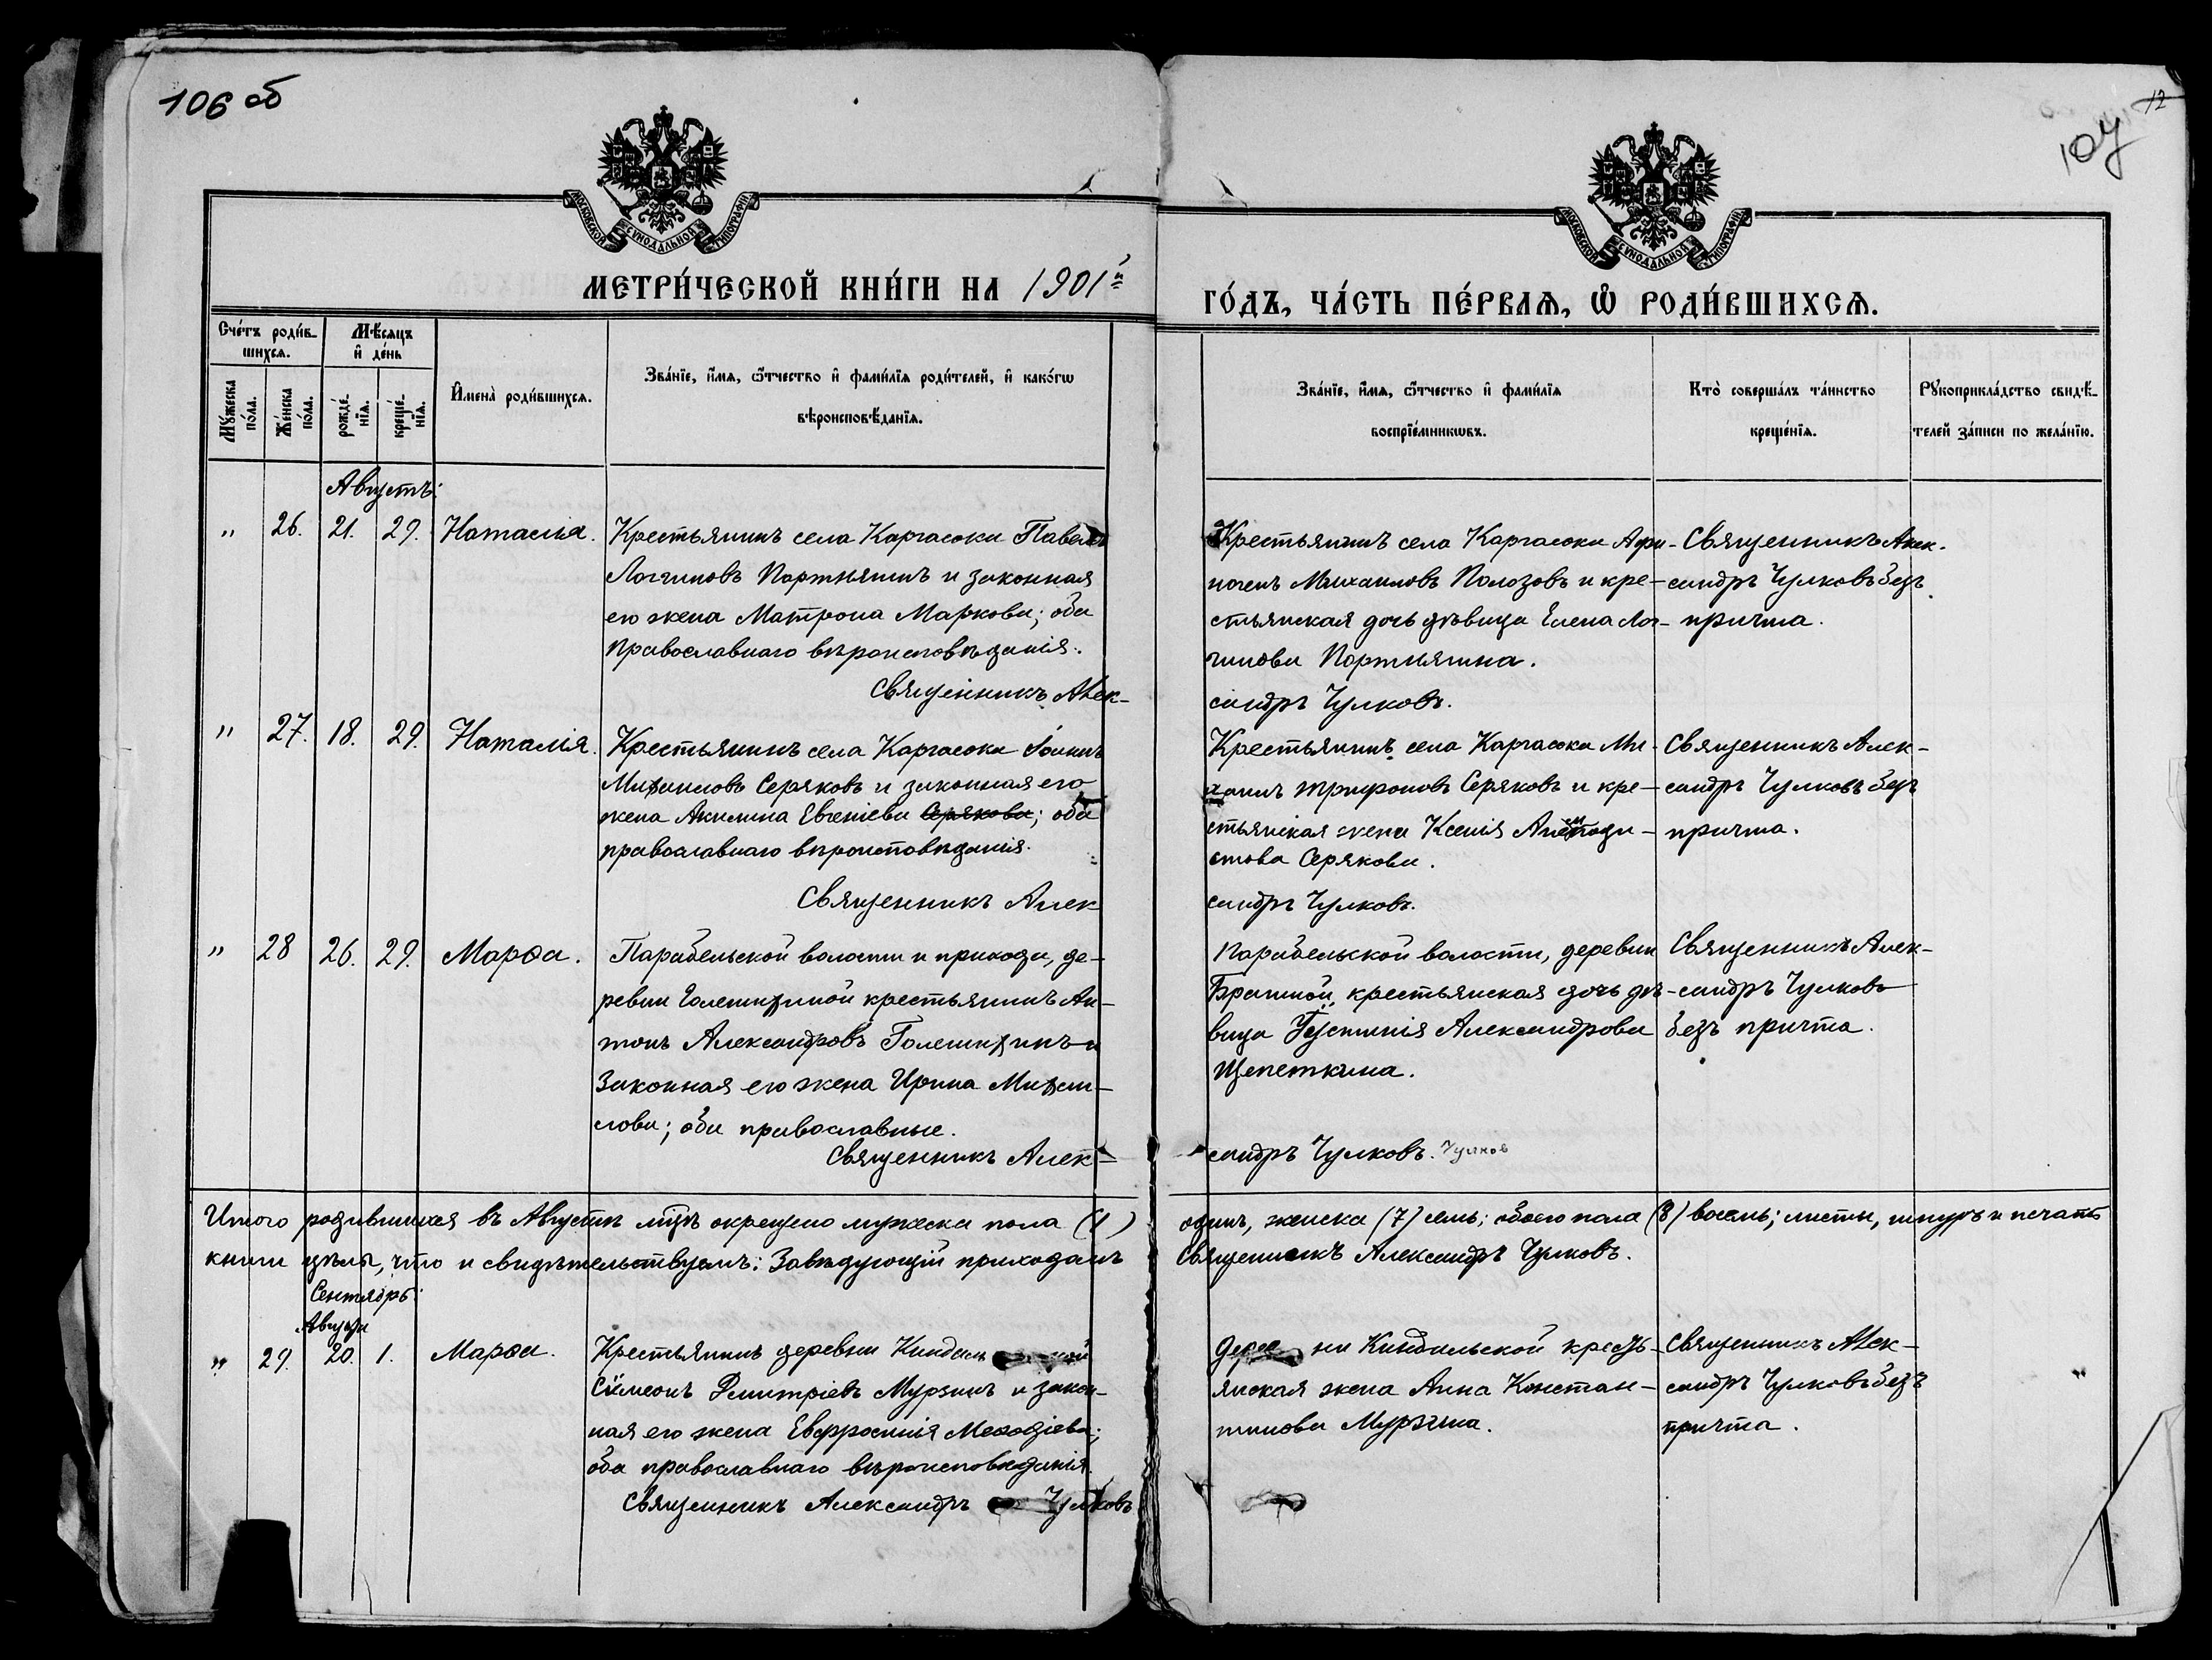 106 об
12
107
МОСКОВСКОЙ СУНОДАЛЬНОЙ ТИПОГРАФІИ
МОСКОВСКОЙ СУНОДАЛЬНОЙ ТИПОГРАФІИ
МЕТРИ́ЧЕСКОЙ КНИ́ГИ НА 1901й
ГО́ДЪ, ЧА́СТЬ ПЕ́РВАѦ, Ѿ РОДИ́ВШИХСѦ.
Сче́тъ роди́в-
шихсѧ.
Мѣ́сѧцъ
и҆ де́нь
Мꙋ́жеска
по́ла.
Же́нска
по́ла.
рожде́-
нїѧ.
креще́-
нїѧ.
И҆мена̀ роди́вшихсѧ.
Зва́нїе, и҆́мѧ, ѻ҆́тчество и҆ фами́лїѧ роди́телей, и҆ како́гѡ
вѣроисповѣ́данїѧ.
Зва́нїе, и҆́мѧ, ѻ҆́тчество и҆ фами́лїѧ
воспрїе́мникѡвъ.
Кто̀ соверша́лъ та́инство
креще́нїѧ.
Рꙋкоприкла́дство свидѣ́-
телей за́писи по жела́нїю.
Августъ:
" 26. 21. 29. Наталія.
Крестьянинъ села Каргасока Павелъ
Логгиновъ Портнягинъ и законная
его жена Матрона Маркова; оба
Православнаго вѣроисповѣданія.
Священникъ Алек-
Крестьянинъ села Каргасока Афи-
ногенъ Михаиловъ Полозовъ и кре-
стьянская дочь дѣвица Елена Лог-
гинова Портнягина.
сандръ Чулковъ.
Священникъ Алек-
сандръ Чулковъ безъ
причта.
" 27. 18. 29. Наталія.
Крестьянинъ села Каргасока Іоаннъ
Михаиловъ Серяковъ и законная его
жена Акилина Евгеніева Серякова; оба
православнаго вѣроисповѣданія.
Священникъ Алек
Крестьянинъ села Каргасока Ми-
хаилъ Трифоновъ Серяковъ и кре-
стьянская жена Ксенія
стова Серякова.
сандръ Чулковъ.
Священникъ Алек-
сандръ Чулковъ безъ
причта.
" 28 26. 29. Марѳа.
Парабельской волости и прихода, де-
ревни Голещихиной крестьянинъ Ан-
тонъ Александровъ Голещихинъ и
Законная его жена Ирина Михаи-
лова; оба православные.
Священникъ Алек-
Парабельской волости, деревни
крестьянская дочь дѣ-
вица Устинія Александрова
Щепеткина.
сандръ Чулковъ. Чулков
Священникъ Алек-
сандръ Чулковъ
безъ причта.
Итого родившихся въ Августѣ мцѣ окрещено мужеска пола (1)
одинъ, женска (7) семь; обоего пола (8) восемь; листы, шнуръ и печать
книги цѣлы, что и свидѣтельствуемъ: Завѣдующій приходомъ
Священникъ Александръ Чулковъ.
Сентябрь:
Августа
" 29. 20. 1. Марѳа.
Крестьянинъ деревни Киндаль ской
Сѵмеонъ Дмитріевъ Мурзинъ и закон-
ная его жена Евфросинія Меѳодіева;
оба православнаго вѣроисповѣданія.
Священникъ Александръ Чулковъ
Дерев ни Киндальской кресть-
янская жена Анна Констан-
тинова Мурзина.
Священникъ Алек-
сандръ Чулковъ безъ
причта.